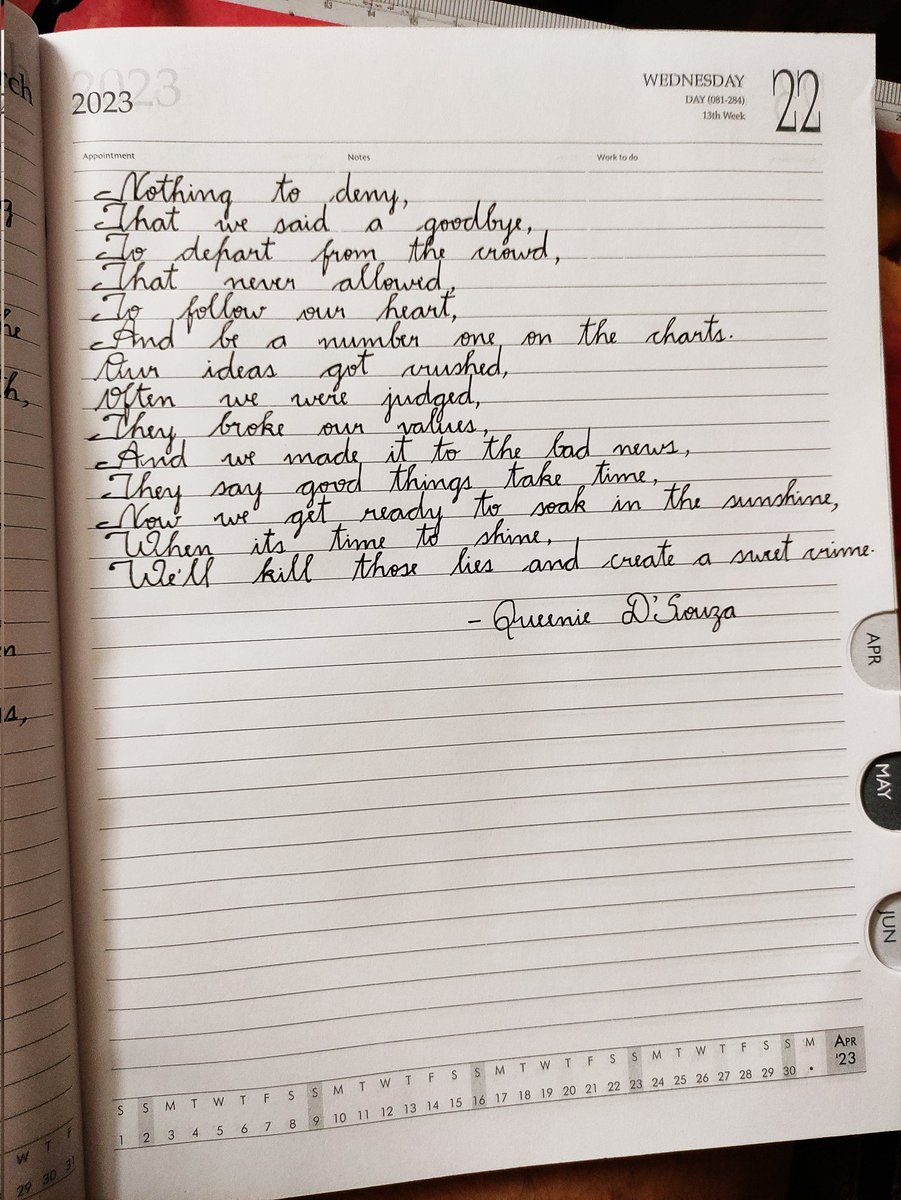 rch
2023
2023
WEDNESDAY
22
DAY (081-284)
13th Week
Appointment Notes Work to do
Nothing to deny,
That we said a goodbye,
To depart from the crowd,
That never allowed,
To follow our heart,
And be a number one on the charts.
Our ideas got crushed,
Often we were judged,
They broke our values,
And we made it to the bad news,
They say good things take time,
Now we get ready to soak in the sunshine,
When its time to shine,
We'll kill those lies and create a sweet crime.
- Queenie D'Souza
APR
MAY
JUN
S S M T W T F S S M T W T F S S M T W T F S S M T W T F S S M APR
1 2 3 4 5 6 7 8 9 10 11 12 13 14 15 16 17 18 19 20 21 22 23 24 25 26 27 28 29 30 • '23
W T F
29 30 31